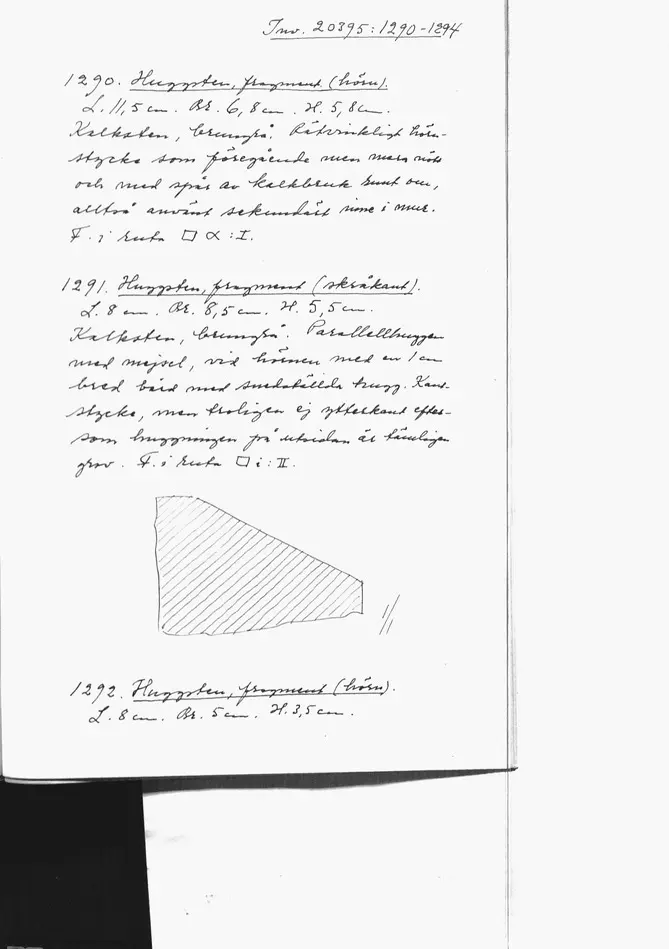 Inv. 20395:1290-1294
1290. Huggsten, fragment (hörn).
L. 11,5 cm. Br. 6,8 cm. H. 5,8 cm.
Kalksten, brungrå. Rätvinkligt hörn-
stycke som föregående men mera nött
och med spår av kalkbruk runt om,
alltså använt sekundärt inne i mur.
F. i ruta □ α : I.
1291. Huggsten, fragment (skråkant).
L. 8 cm. Br. 8,5 cm. H. 5,5 cm.
Kalksten, brungrå. Parallellhuggen
med mejsel, vid hörnen med en 1 cm
bred bård med snedställda hugg. Kant-
stycke, men troligen ej ytterkant efter-
som huggningen på utsidan är tämligen
grov. F. i ruta □ i : II.
1/1
1292. Huggsten, fragment (hörn).
L. 8 cm. Br. 5 cm. H. 3,5 cm.